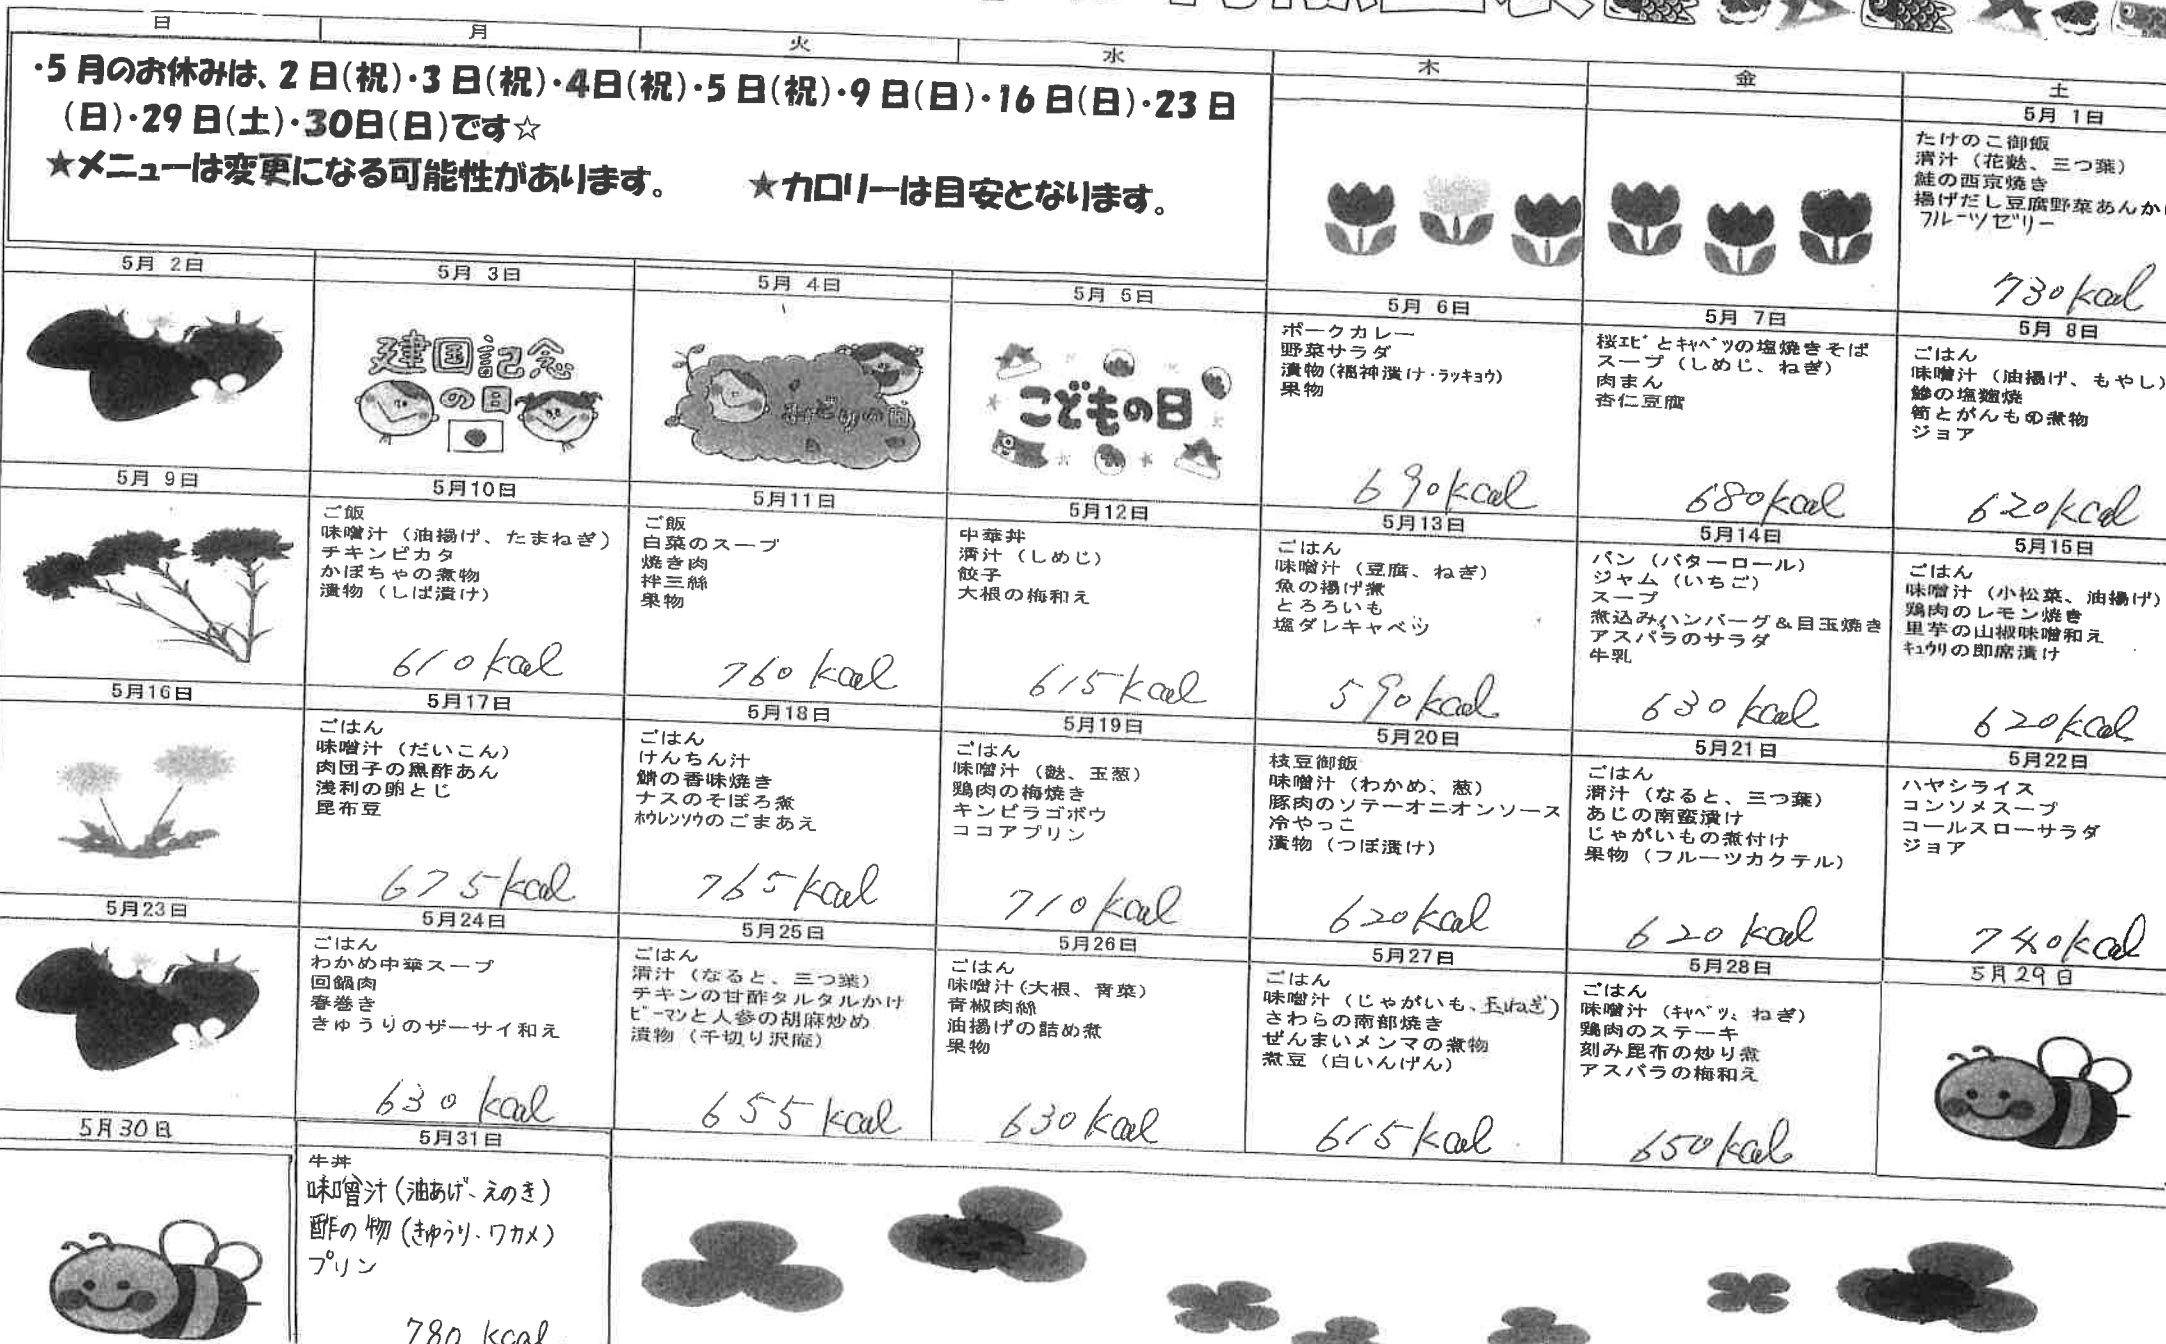 日 月 火 水 木 金 土
・5月のお休みは、2日(祝)・3日(祝)・4日(祝)・5日(祝)・9日(日)・16日(日)・23日
(日)・29日(土)・30日(日)です☆
★メニューは変更になる可能性があります。 ★カロリーは目安となります。
5月 1日
たけのこ御飯
清汁（花麩、三つ葉）
鮭の西京焼き
揚げだし豆腐野菜あんか
フルーツゼリー
730kcal
5月 2日
5月 3日
建国記念
の日
5月 4日
みどりの日
5月 5日
こどもの日
5月 6日
ポークカレー
野菜サラダ
漬物(福神漬け・ラッキョウ)
果物
690kcal
5月 7日
桜エビとキャベツの塩焼きそば
スープ（しめじ、ねぎ）
肉まん
杏仁豆腐
680kcal
5月 8日
ごはん
味噌汁（油揚げ、もやし）
鯵の塩麹焼
筍とがんもの煮物
ジョア
620kcal
5月 9日
5月10日
ご飯
味噌汁（油揚げ、たまねぎ）
チキンピカタ
かぼちゃの煮物
漬物（しば漬け）
610kcal
5月11日
ご飯
白菜のスープ
焼き肉
拌三絲
果物
760kcal
5月12日
中華丼
清汁（しめじ）
餃子
大根の梅和え
615kcal
5月13日
ごはん
味噌汁（豆腐、ねぎ）
魚の揚げ煮
とろろいも
塩ダレキャベツ
590kcal
5月14日
パン（バターロール）
ジャム（いちご）
スープ
煮込みハンバーグ＆目玉焼き
アスパラのサラダ
牛乳
630kcal
5月15日
ごはん
味噌汁（小松菜、油揚げ）
鶏肉のレモン焼き
里芋の山椒味噌和え
キュウリの即席漬け
620kcal
5月16日
5月17日
ごはん
味噌汁（だいこん）
肉団子の黒酢あん
浅利の卵とじ
昆布豆
675kcal
5月18日
ごはん
けんちん汁
鯖の香味焼き
ナスのそぼろ煮
ホウレンソウのごまあえ
765kcal
5月19日
ごはん
味噌汁（麩、玉葱）
鶏肉の梅焼き
キンピラゴボウ
ココアプリン
710kcal
5月20日
枝豆御飯
味噌汁（わかめ、葱）
豚肉のソテーオニオンソース
冷やっこ
漬物（つぼ漬け）
620kcal
5月21日
ごはん
清汁（なると、三つ葉）
あじの南蛮漬け
じゃがいもの煮付け
果物（フルーツカクテル）
620kcal
5月22日
ハヤシライス
コンソメスープ
コールスローサラダ
ジョア
740kcal
5月23日
5月24日
ごはん
わかめ中華スープ
回鍋肉
春巻き
きゅうりのザーサイ和え
630kcal
5月25日
ごはん
清汁（なると、三つ葉）
チキンの甘酢タルタルかけ
ピーマンと人参の胡麻炒め
漬物（千切り沢庵）
655kcal
5月26日
ごはん
味噌汁(大根、青菜）
青椒肉絲
油揚げの詰め煮
果物
630kcal
5月27日
ごはん
味噌汁（じゃがいも、玉ねぎ）
さわらの南部焼き
ぜんまいメンマの煮物
煮豆（白いんげん）
615kcal
5月28日
ごはん
味噌汁（キャベツ、ねぎ）
鶏肉のステーキ
刻み昆布の炒り煮
アスパラの梅和え
650kcal
5月29日
5月30日
5月31日
牛丼
味噌汁(油あげ、えのき)
酢の物(きゅうり、ワカメ)
プリン
780kcal